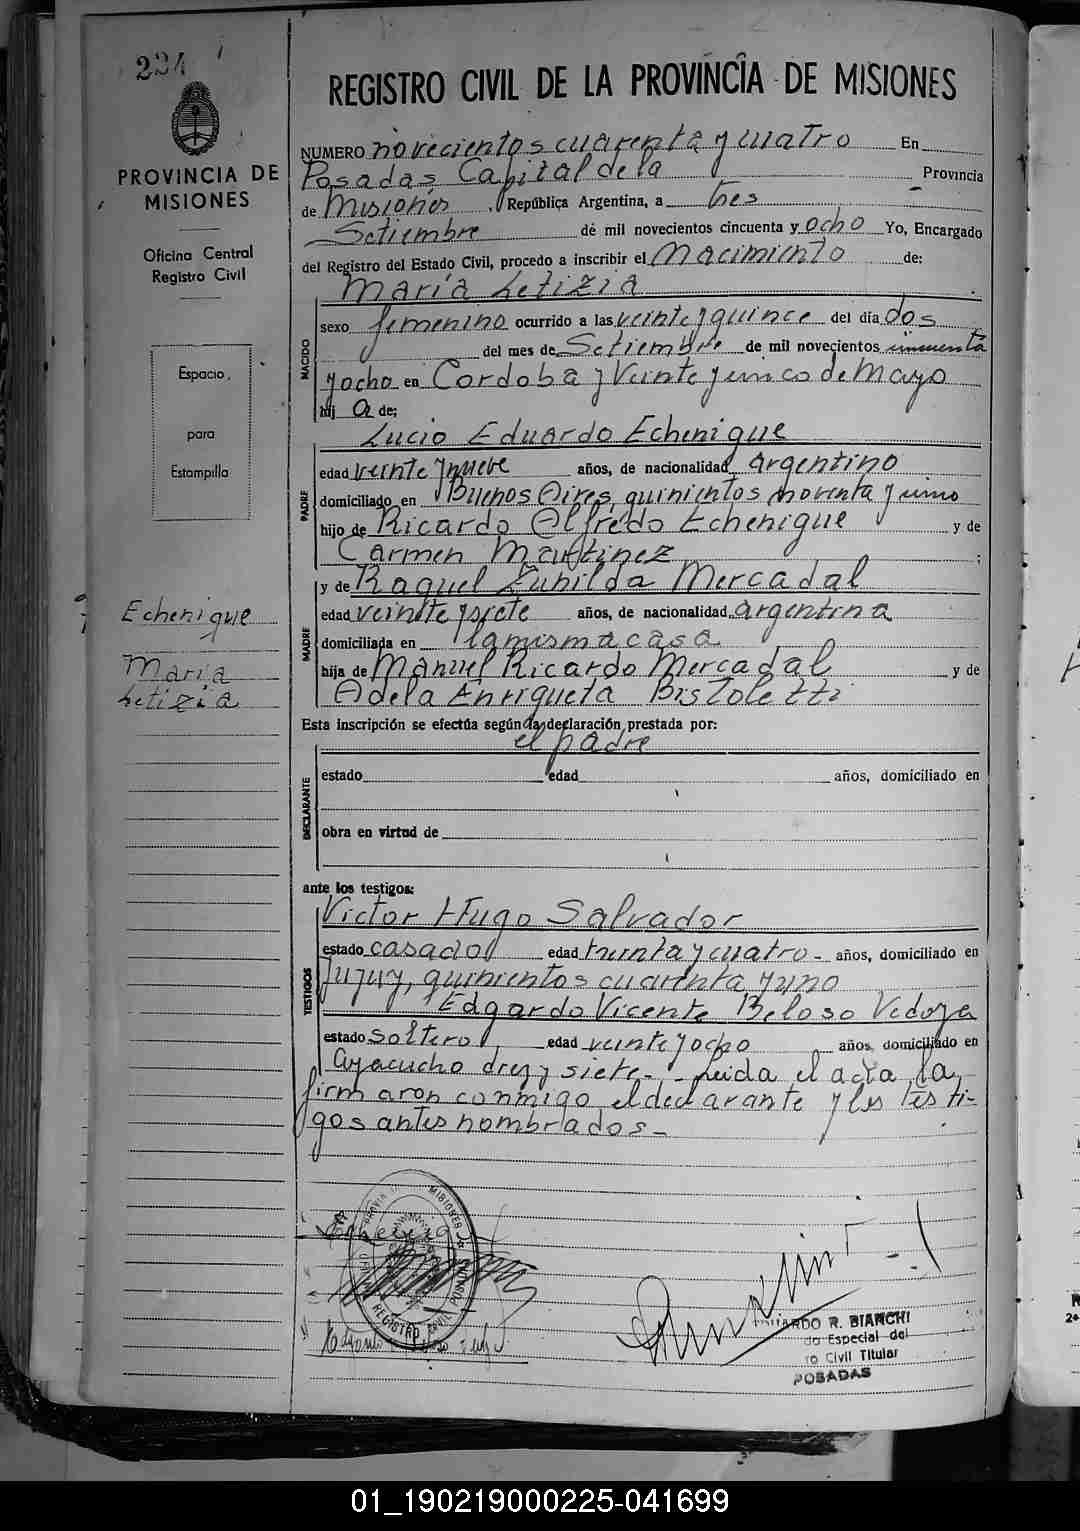 224
PROVINCIA DE
MISIONES
Oficina Central
Registro Civil
Espacio,
para
Estampilla
Echenique
María
Letizia
REGISTRO CIVIL DE LA PROVINCIA DE MISIONES
NUMERO novecientos cuarenta y cuatro En
Posadas Capital de la Provincia
de Misiones, República Argentina, a tres
Setiembre de mil novecientos cincuenta y ocho Yo, Encargado
del Registro del Estado Civil, procedo a inscribir el Nacimiento de:
María Letizia
NACIDO
sexo femenino ocurrido a las veinte y quince del día dos
del mes de Setiembre de mil novecientos cincuenta
y ocho en Cordoba y Veinte y cinco de Mayo
hij a de;
Lucio Eduardo Echenique
PADRE
edad veinte y nueve años, de nacionalidad argentino
domiciliado en Buenos Aires, quinientos noventa y uno
hijo de Ricardo Alfredo Echenique y de
Carmen Martinez ;
y de Raquel Zunilda Mercadal
MADRE
edad veinte y siete años, de nacionalidad argentina
domiciliada en la misma casa
hija de Manuel Ricardo Mercadal y de
Adela Enriqueta Bistoletti
Esta inscripción se efectúa según la declaración prestada por:
el padre
DECLARANTE
estado edad años, domiciliado en
obra en virtud de
ante los testigos:
Victor Hugo Salvador
TESTIGOS
estado casado edad treinta y cuatro - años, domiciliado en
Jujuy, quinientos cuarenta y uno
Edgardo Vicente Beloso Vedoya
estado soltero, edad veinte y ocho años, domiciliado en
Ayacucho diez y siete.- Leida el acta, la
firmaron conmigo, el declarante y los testi-
gos antes nombrados.-
MISIONES
REGISTRO CIVIL POSADAS
R. BIANCHI
do Especial del
ro Civil Titular
POSADAS
01_190219000225-041699